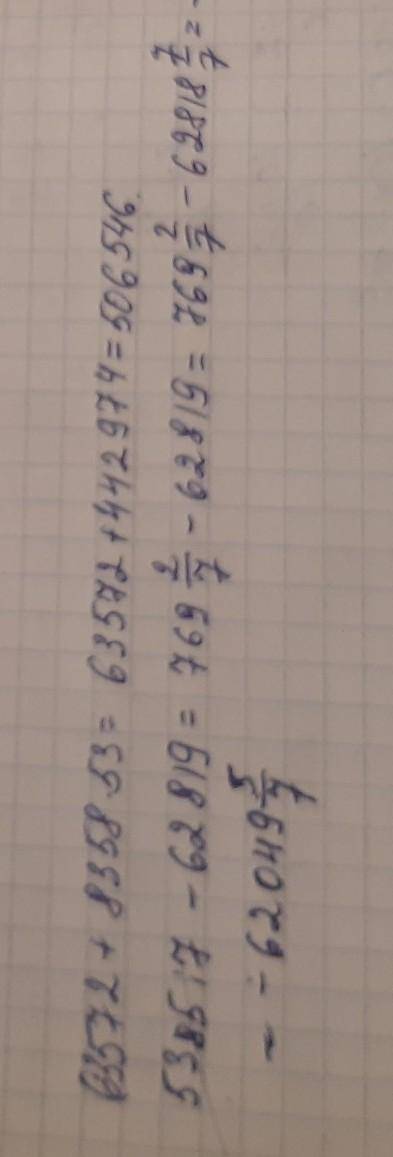 63572 + 8358 · 53 = 63572 + 442974 = 506546.
5385 : 7 - 62819 = 769 2/7 - 62819 = 769 2/7 - 62818 7/7 =
= - 62049 5/7